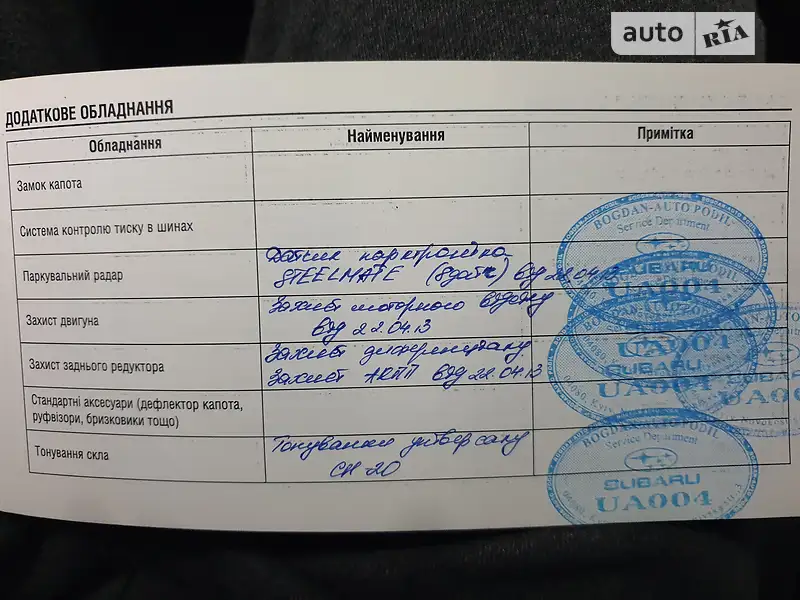 auto RIA
ДОДАТКОВЕ ОБЛАДНАННЯ
Обладнання
Найменування
Примітка
Замок капота
Система контролю тиску в шинах
Паркувальний радар
Датчик парктроніка
STEELMATE (8датч) від 22.04.13
Захист двигуна
Захист моторного відсіку
від 22.04.13
Захист заднього редуктора
Захист диференціалу
Захист АКПП від 22.04.13
Стандартні аксесуари (дефлектор капота,
руфвізори, бризковики тощо)
Тонування скла
Тонування універсалу
СН-20
BOGDAN-AUTO PODIL
Service Department
SUBARU
UA004
UA004
SUBARU
UA004
BOGDAN-AUTO PODIL
Service Department
SUBARU
UA004